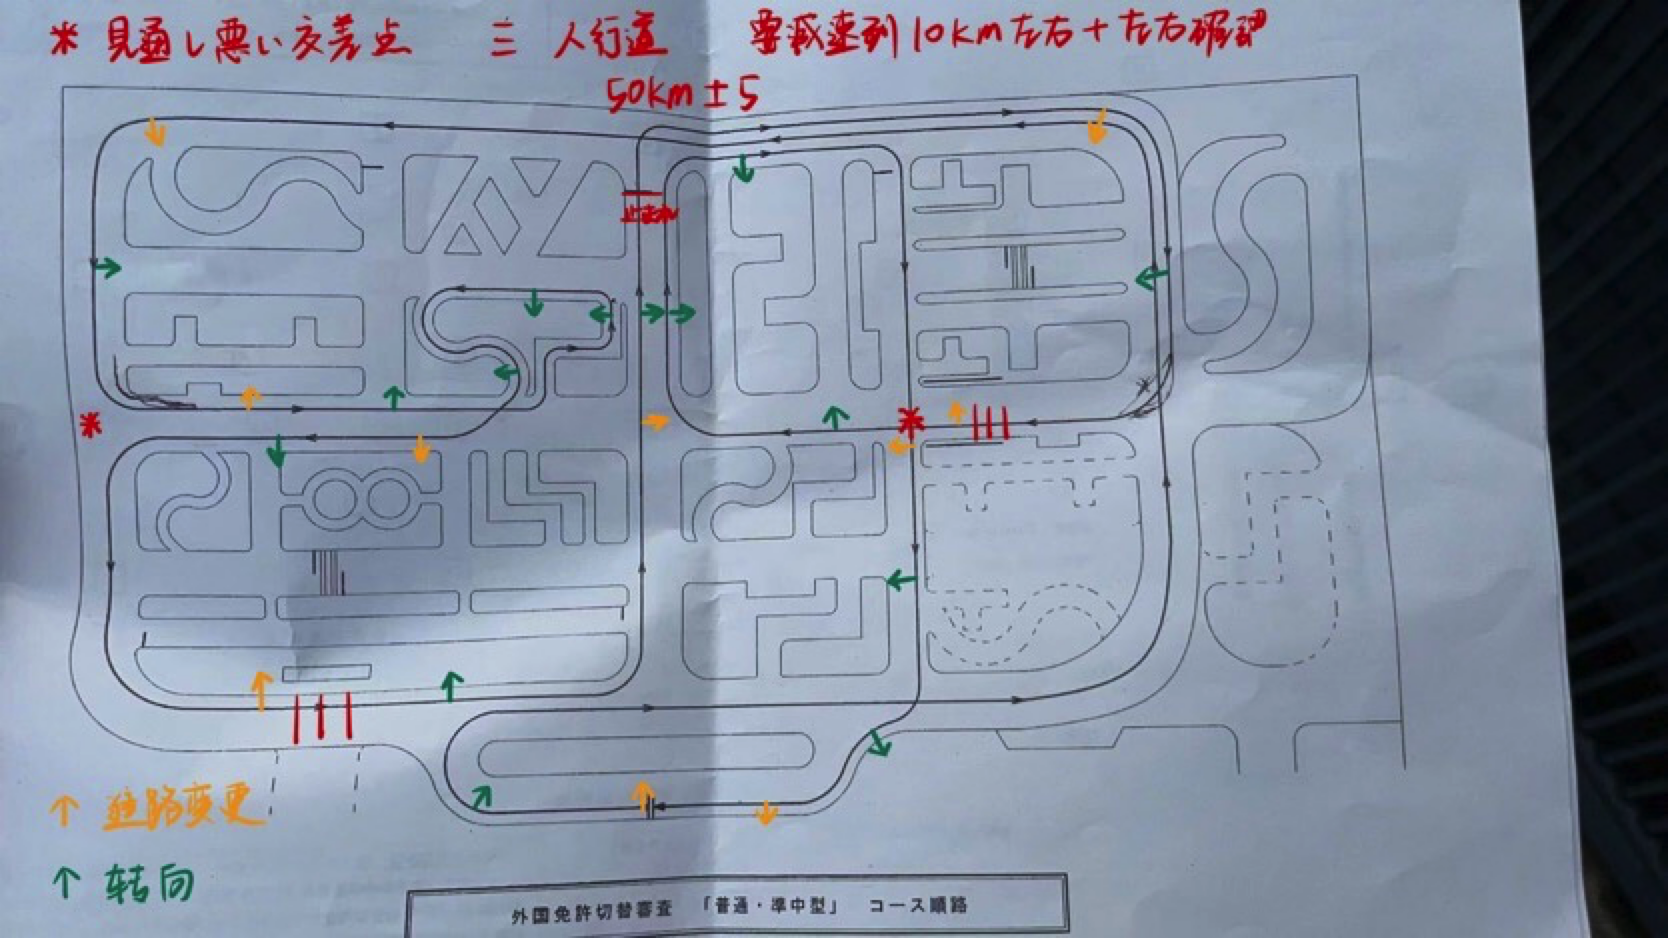 * 見通し悪い交差点 三 人行道 要减速到10km左右+左右確認
50km±5
止まれ
↑ 進路変更
↑ 转向
外国免許切替審査 「普通・準中型」 コース順路